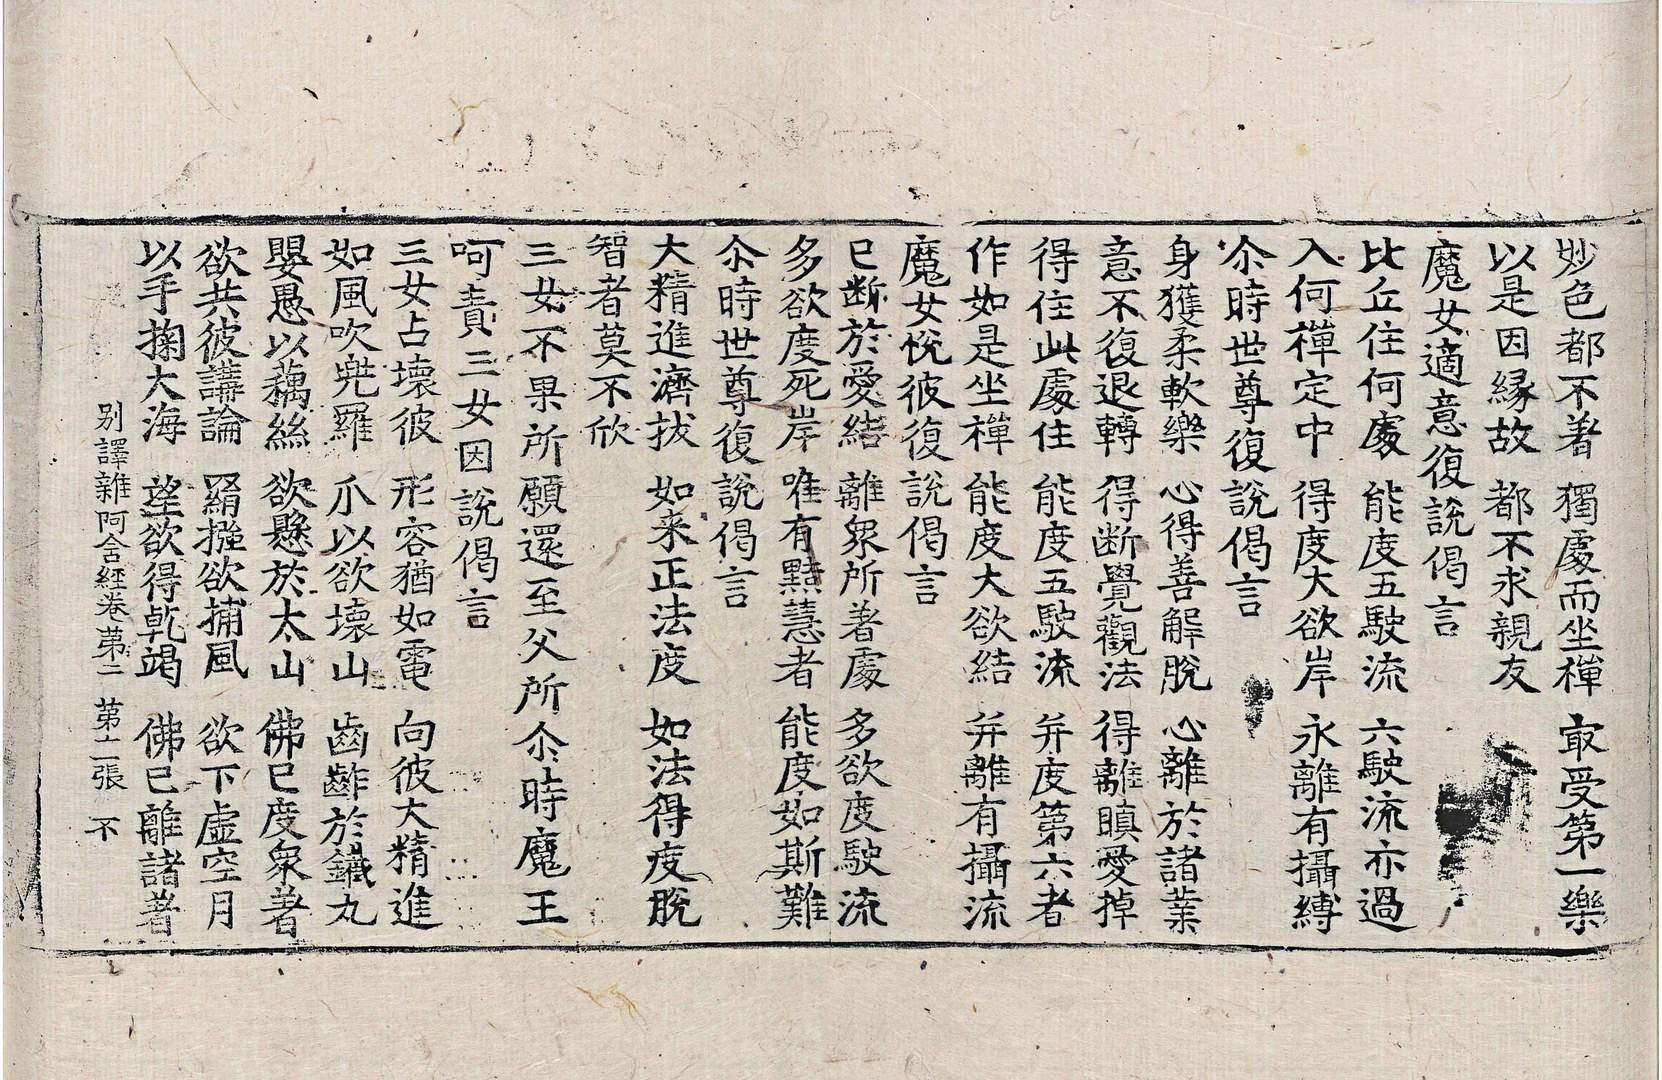 妙色都不著　獨處而坐禪　㝡受第一樂
以是因緣故　都不求親友
魔女適意復說偈言
比丘住何處　能度五駛流　六駛流亦過
入何禪定中　得度大欲岸　永離有攝縛
尒時世尊復說偈言
身獲柔軟樂　心得善解脫　心離於諸業
意不復退轉　得斷覺觀法　得離瞋愛掉
得住此處住　能度五駛流　并度第六者
作如是坐禪　能度大欲結　并離有攝流
魔女悅彼復說偈言
已斷於愛結　離衆所著處　多欲度駛流
多欲度死岸　唯有黠慧者　能度如斯難
尒時世尊復說偈言
大精進濟拔　如来正法度　如法得度脫
智者莫不欣
三女不果所願還至父所尒時魔王
呵責三女因說偈言
三女占壞彼　形容猶如電　向彼大精進
如風吹兠羅　爪以欲壞山　齒齚於鐵丸
嬰愚以藕絲　欲懸於太山　佛已度衆著
欲共彼講論　羂㩱欲捕風　欲下虛空月
以手掬大海　望欲得乾竭　佛已離諸著
別譯雜阿含經卷第二　第二張　不